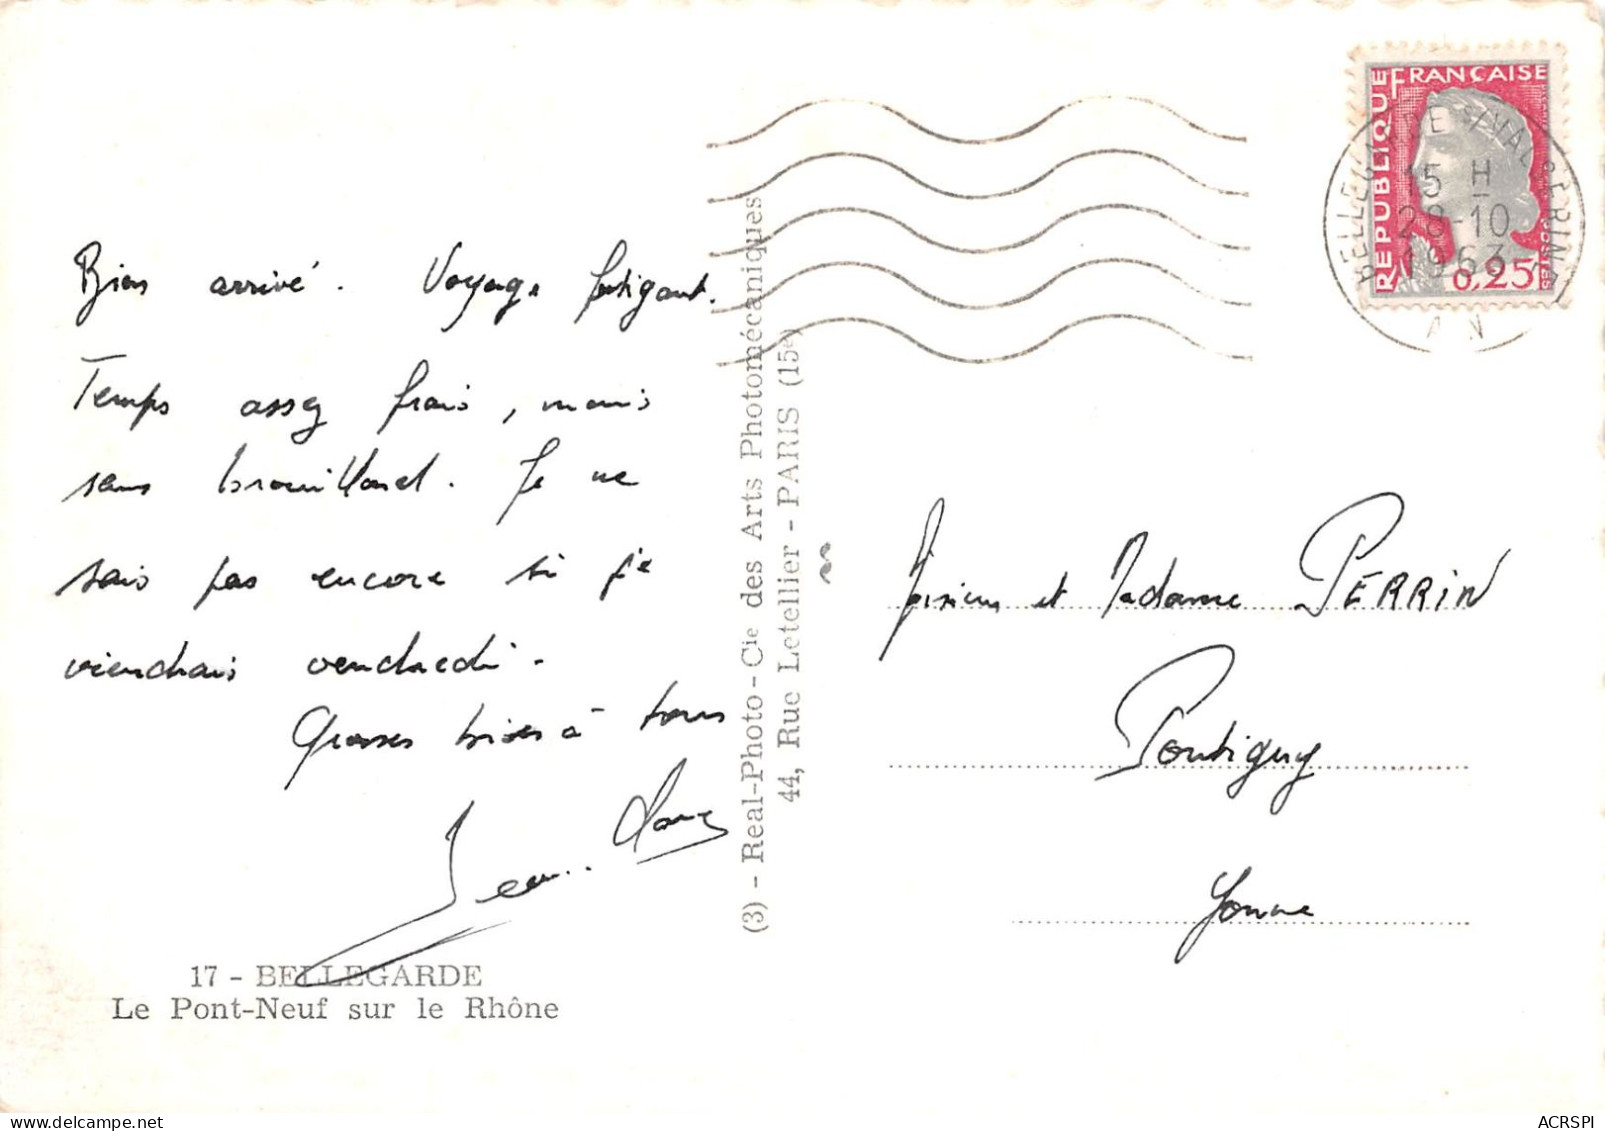 Bien arrivé. Voyage fatigant.
Temps assez frais, mais
sans brouillard. Je ne
sais pas encore si je
viendrais vendredi.
Grosses bises à tous
Jean-Marc
17 - BELLEGARDE
Le Pont-Neuf sur le Rhône
(3) - Real-Photo - Cie des Arts Photomécaniques
44, Rue Letellier - PARIS (15e)
REPUBLIQUE FRANÇAISE
POSTES
0,25
BELLEGARDE S/VALSERINE
15 H
28-10
1963
AIN
Monsieur et Madame PERRIN
Pontigny
Yonne
ACRSPI